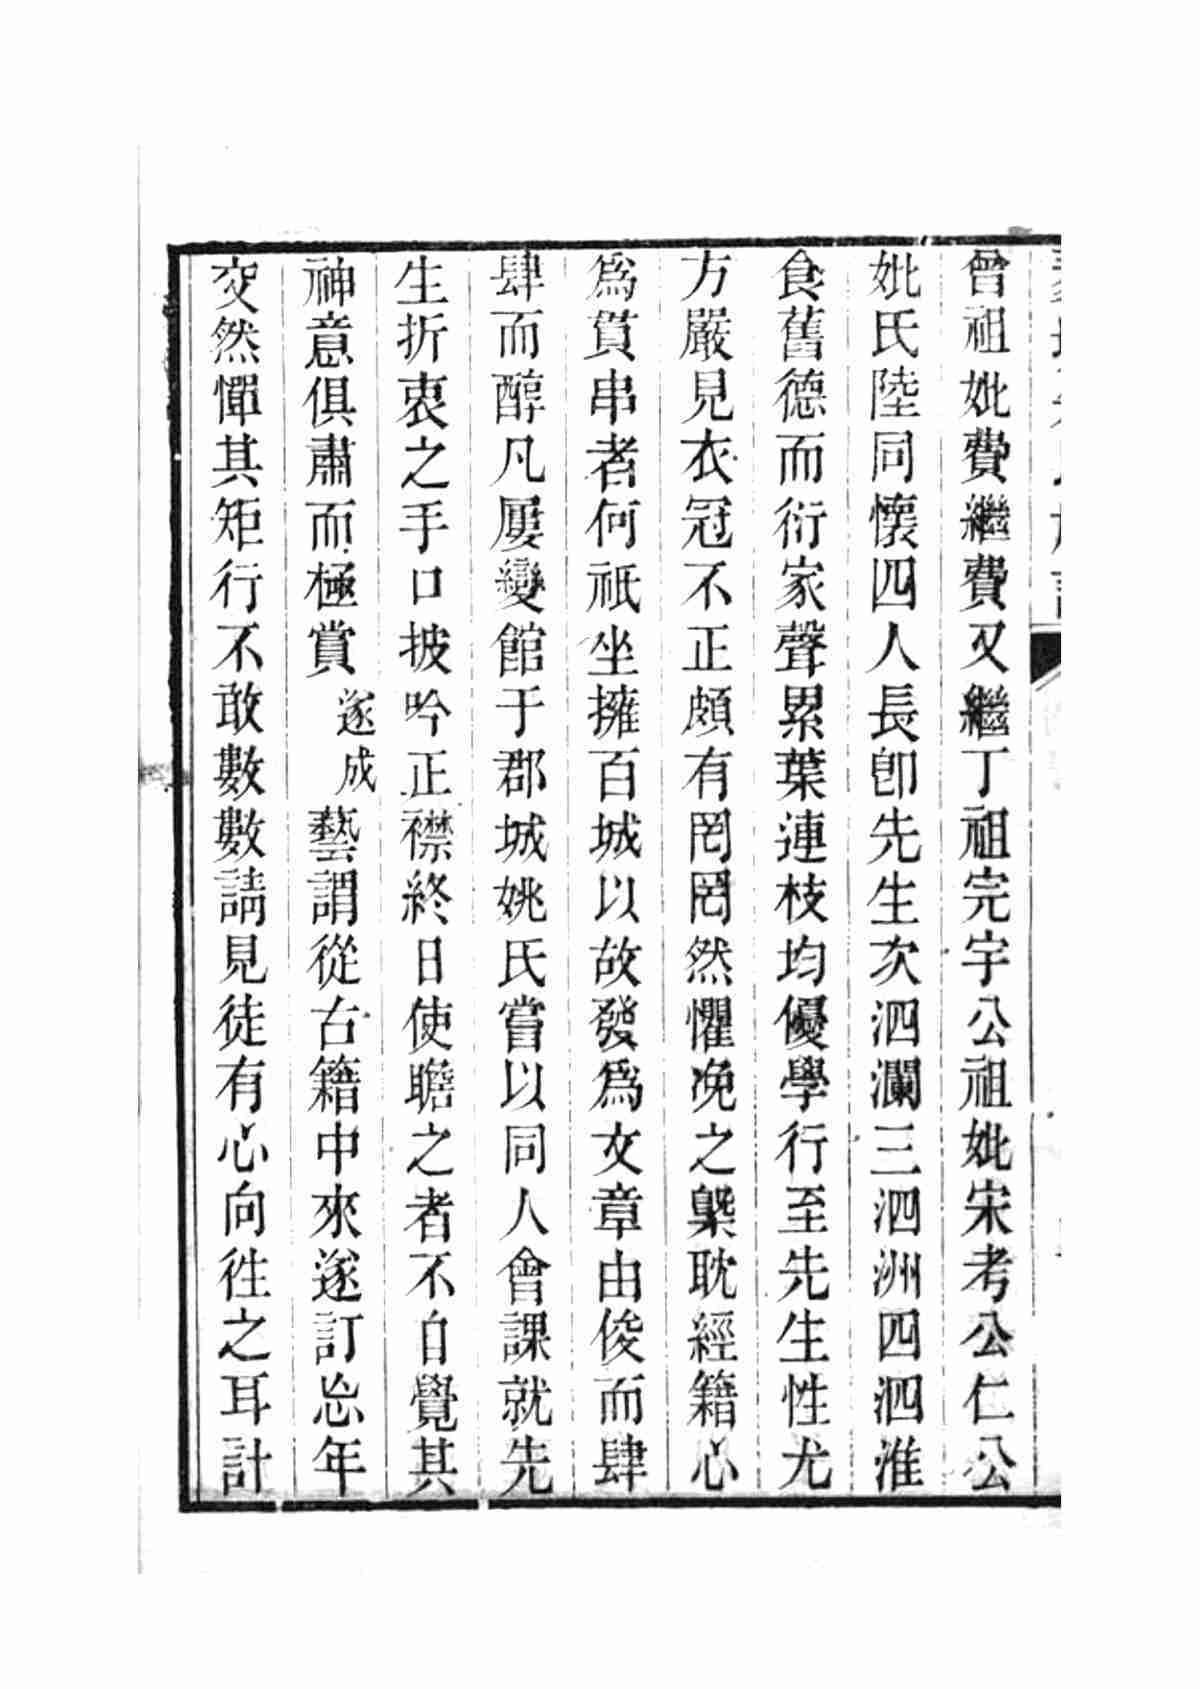 曾祖妣費繼費又繼丁祖完宇公祖妣宋考公仁公
妣氏陸同懷四人長卽先生次泗瀾三泗洲四泗淮
食舊德而衍家聲累葉連枝均優學行至先生性尤
方嚴見衣冠不正頗有罔罔然懼浼之槩耽經籍心
爲貫串者何祇坐擁百城以故發爲文章由俊而肆
肆而醇凡屢變館于郡城姚氏嘗以同人會課就先
生折衷之手口披吟正襟終日使瞻之者不自覺其
神意俱肅而極賞遂成藝謂從古籍中來遂訂忘年
交然憚其矩行不敢數數請見徒有心向徃之耳計